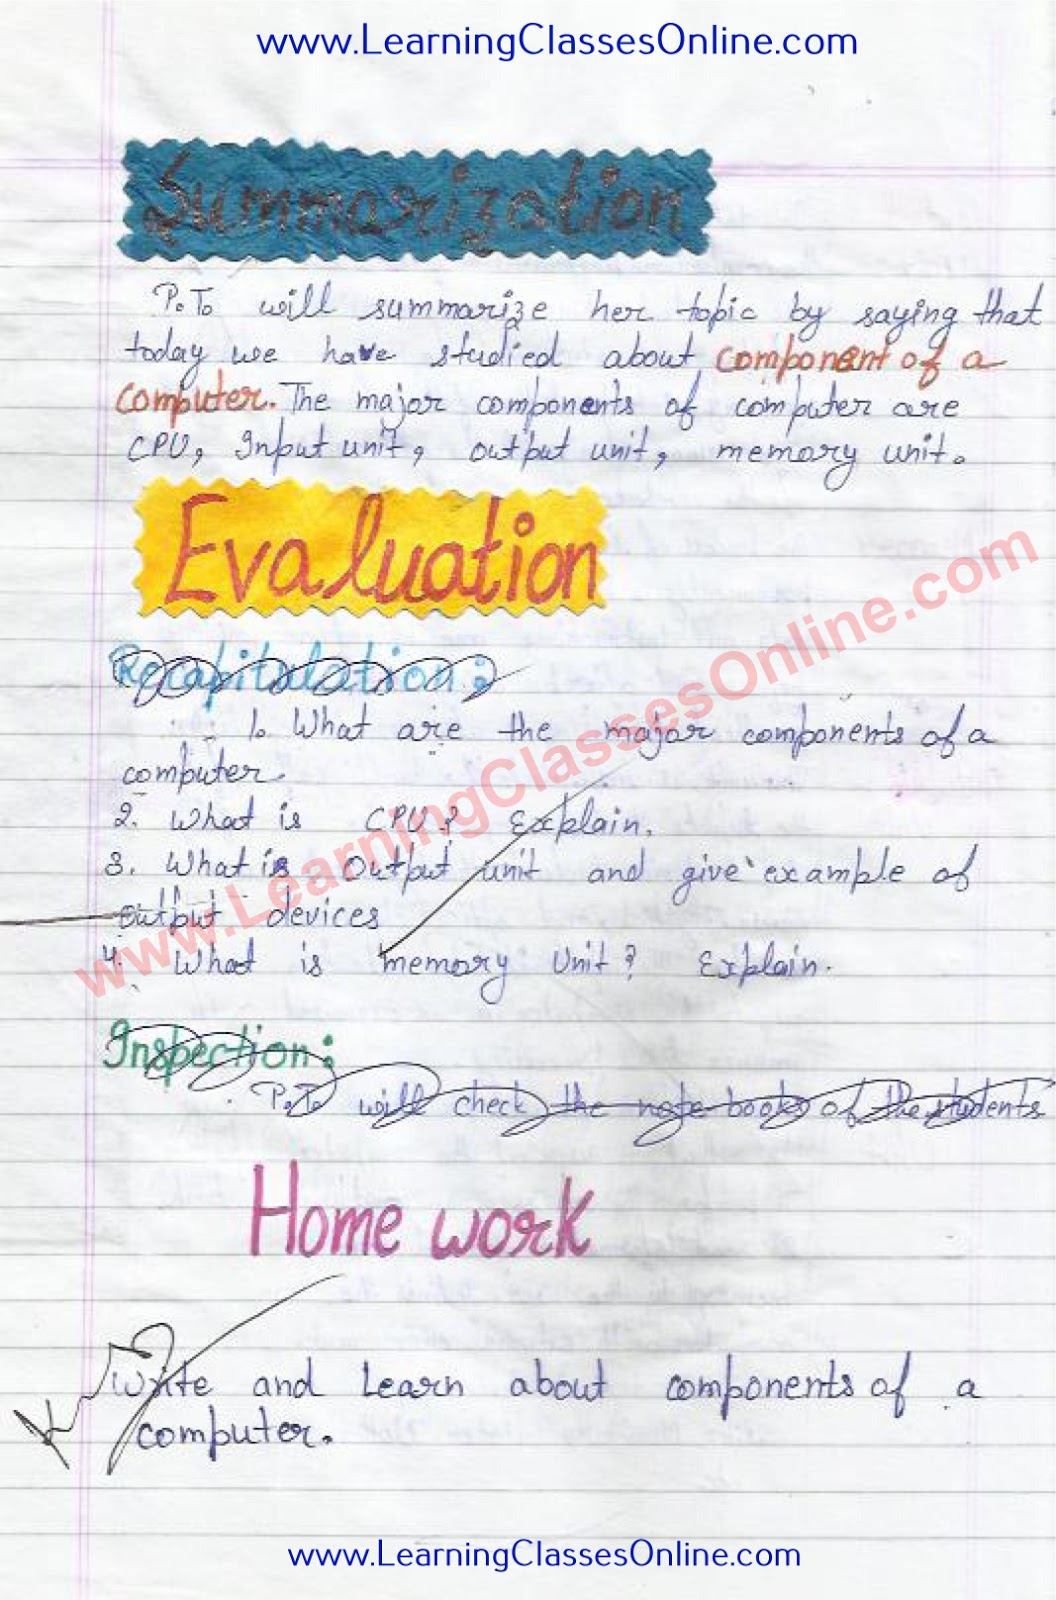 www.LearningClassesOnline.com
Summarization
P.T. will summarize her topic by saying that
today we have studied about component of a
computer. The major components of computer are
CPU, Input unit, output unit, memory unit.
Evaluation
Recapitulation:
1. What are the major components of a
computer.
2. What is CPU? Explain.
3. What is Output unit and give example of
output devices
4. What is memory Unit? Explain.
www.LearningClassesOnline.com
Inspection:
P.T. will check the note books of the students
Home work
Write and Learn about components of a
computer.
www.LearningClassesOnline.com